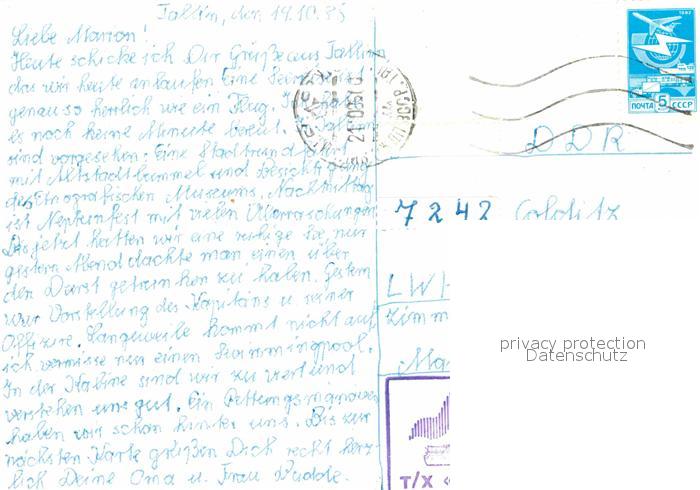 Tallin, den 19.10.85
Liebe Marion!
Heute schicke ich Dir Grüße aus Tallin,
das wir heute anlaufen. Eine Seereise ist
genau so herrlich wie ein Flug. Ich habe
es noch keine Minute bereut. In Tallin
sind vorgesehen: Eine Stadtrundfahrt
mit Altstadtbummel und Besichtigung
des Etnografischen Museums. Nachmittag
ist Neptunfest mit vielen Überraschungen.
Bis jetzt hatten wir eine ruhige See, nur
gestern Abend dachte man einen über
den Durst getrunken zu haben. Gestern
war Vorstellung des Kapitäns u. seiner
Offiziere. Langeweile kommt nicht auf,
ich vermisse nur einen Swimmingpool.
In der Kabine sind wir zu viert und
verstehen uns gut. Ein Rettungsmanöver
haben wir schon hinter uns. Bis zur
nächsten Karte grüßen Dich recht herz-
lich Deine Oma u. Frau
1982
ПОЧТА 5 СССР
DDR
7242 Colditz
LWH
Zimm
Ma
privacy protection
Datenschutz
Т/Х «